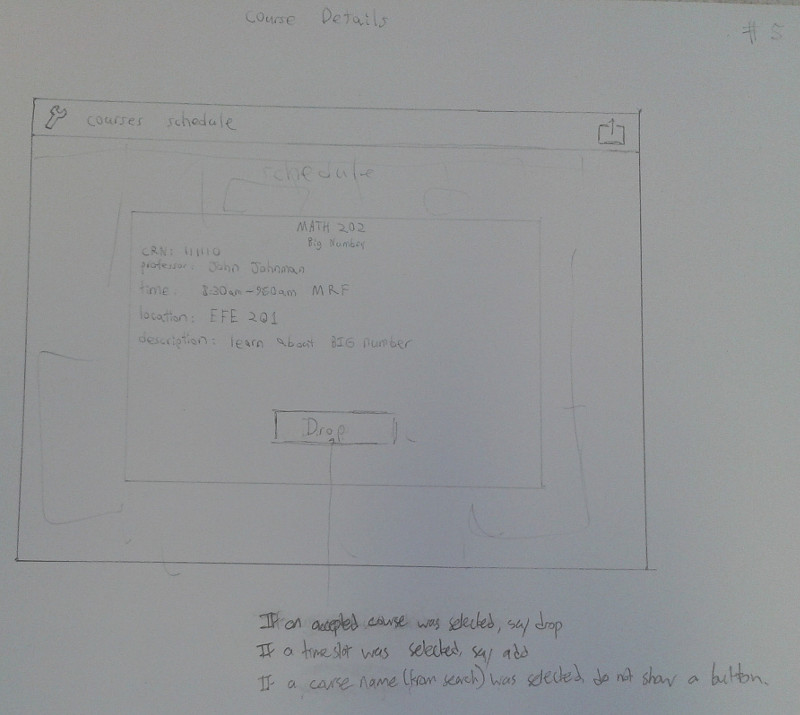 Course Details
# 5
courses schedule
schedule
MATH 202
Big Number
CRN: 11110
professor: John Johnman
time: 8:30am - 9:50am MRF
location: EFE 201
description: learn about BIG number
Drop
If an accepted course was selected, say drop
If a timeslot was selected, say add
If a course name (from search) was selected do not show a button.